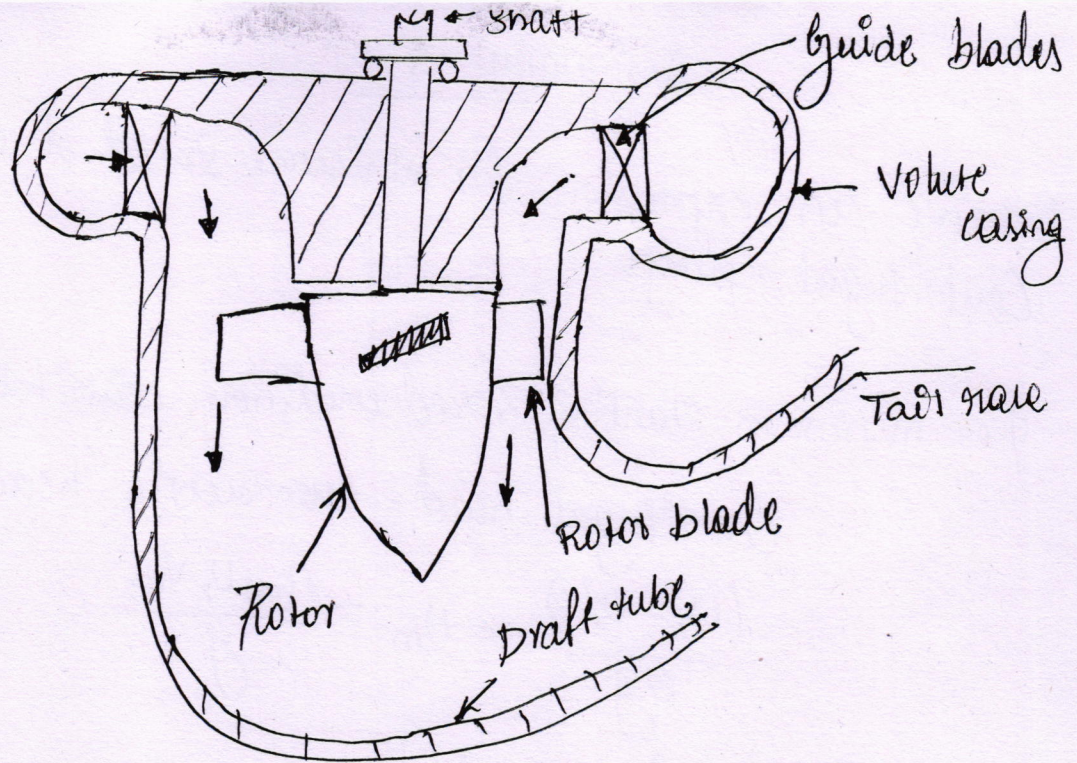 shaft
Guide blades
Volute
casing
Tail race
Rotor blade
Rotor
Draft tube